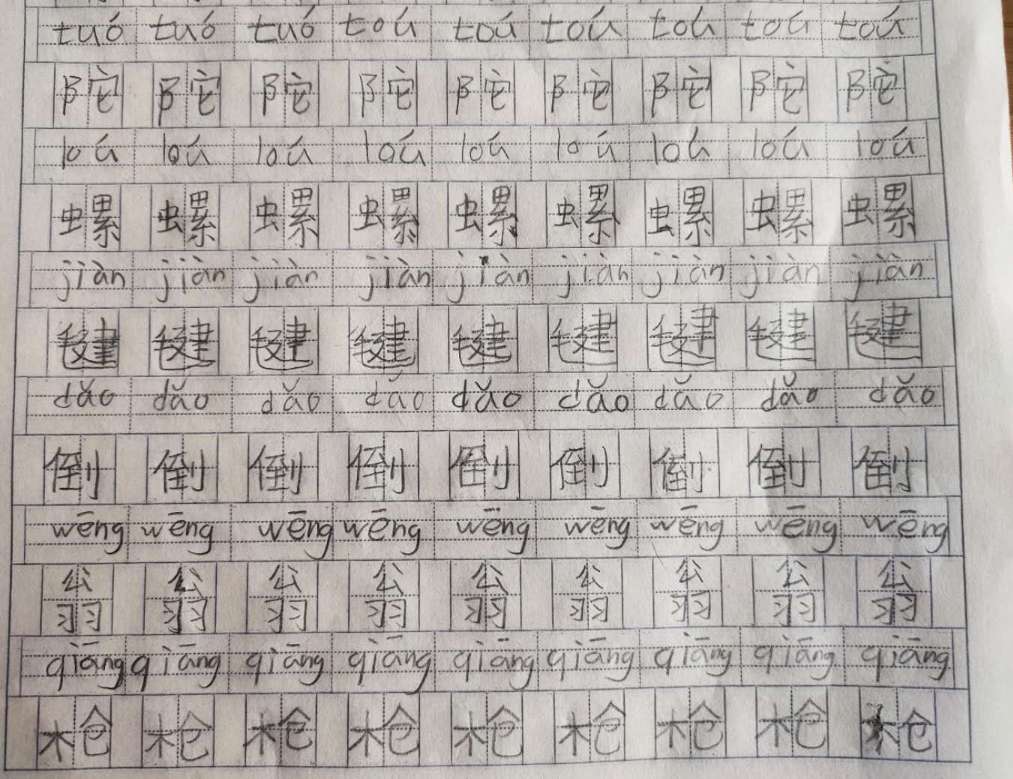 tuó tuó tuó toú toú toú toú toú toú
陀 陀 陀 陀 陀 陀 陀 陀 陀
loú loú loú loú loú loú loú loú loú
螺 螺 螺 螺 螺 螺 螺 螺 螺
jiàn jiàn jiàn jiàn jiàn jiàn jiàn jiàn jiàn
毽 毽 毽 毽 毽 毽 毽 毽 毽
dǎo dǎo dǎo dǎo dǎo dǎo dǎo dǎo dǎo
倒 倒 倒 倒 倒 倒 倒 倒 倒
wēng wēng wēng wēng wēng wēng wēng wēng wēng
翁 翁 翁 翁 翁 翁 翁 翁 翁
qiāng qiāng qiāng qiāng qiāng qiāng qiāng qiāng qiāng
枪 枪 枪 枪 枪 枪 枪 枪 枪